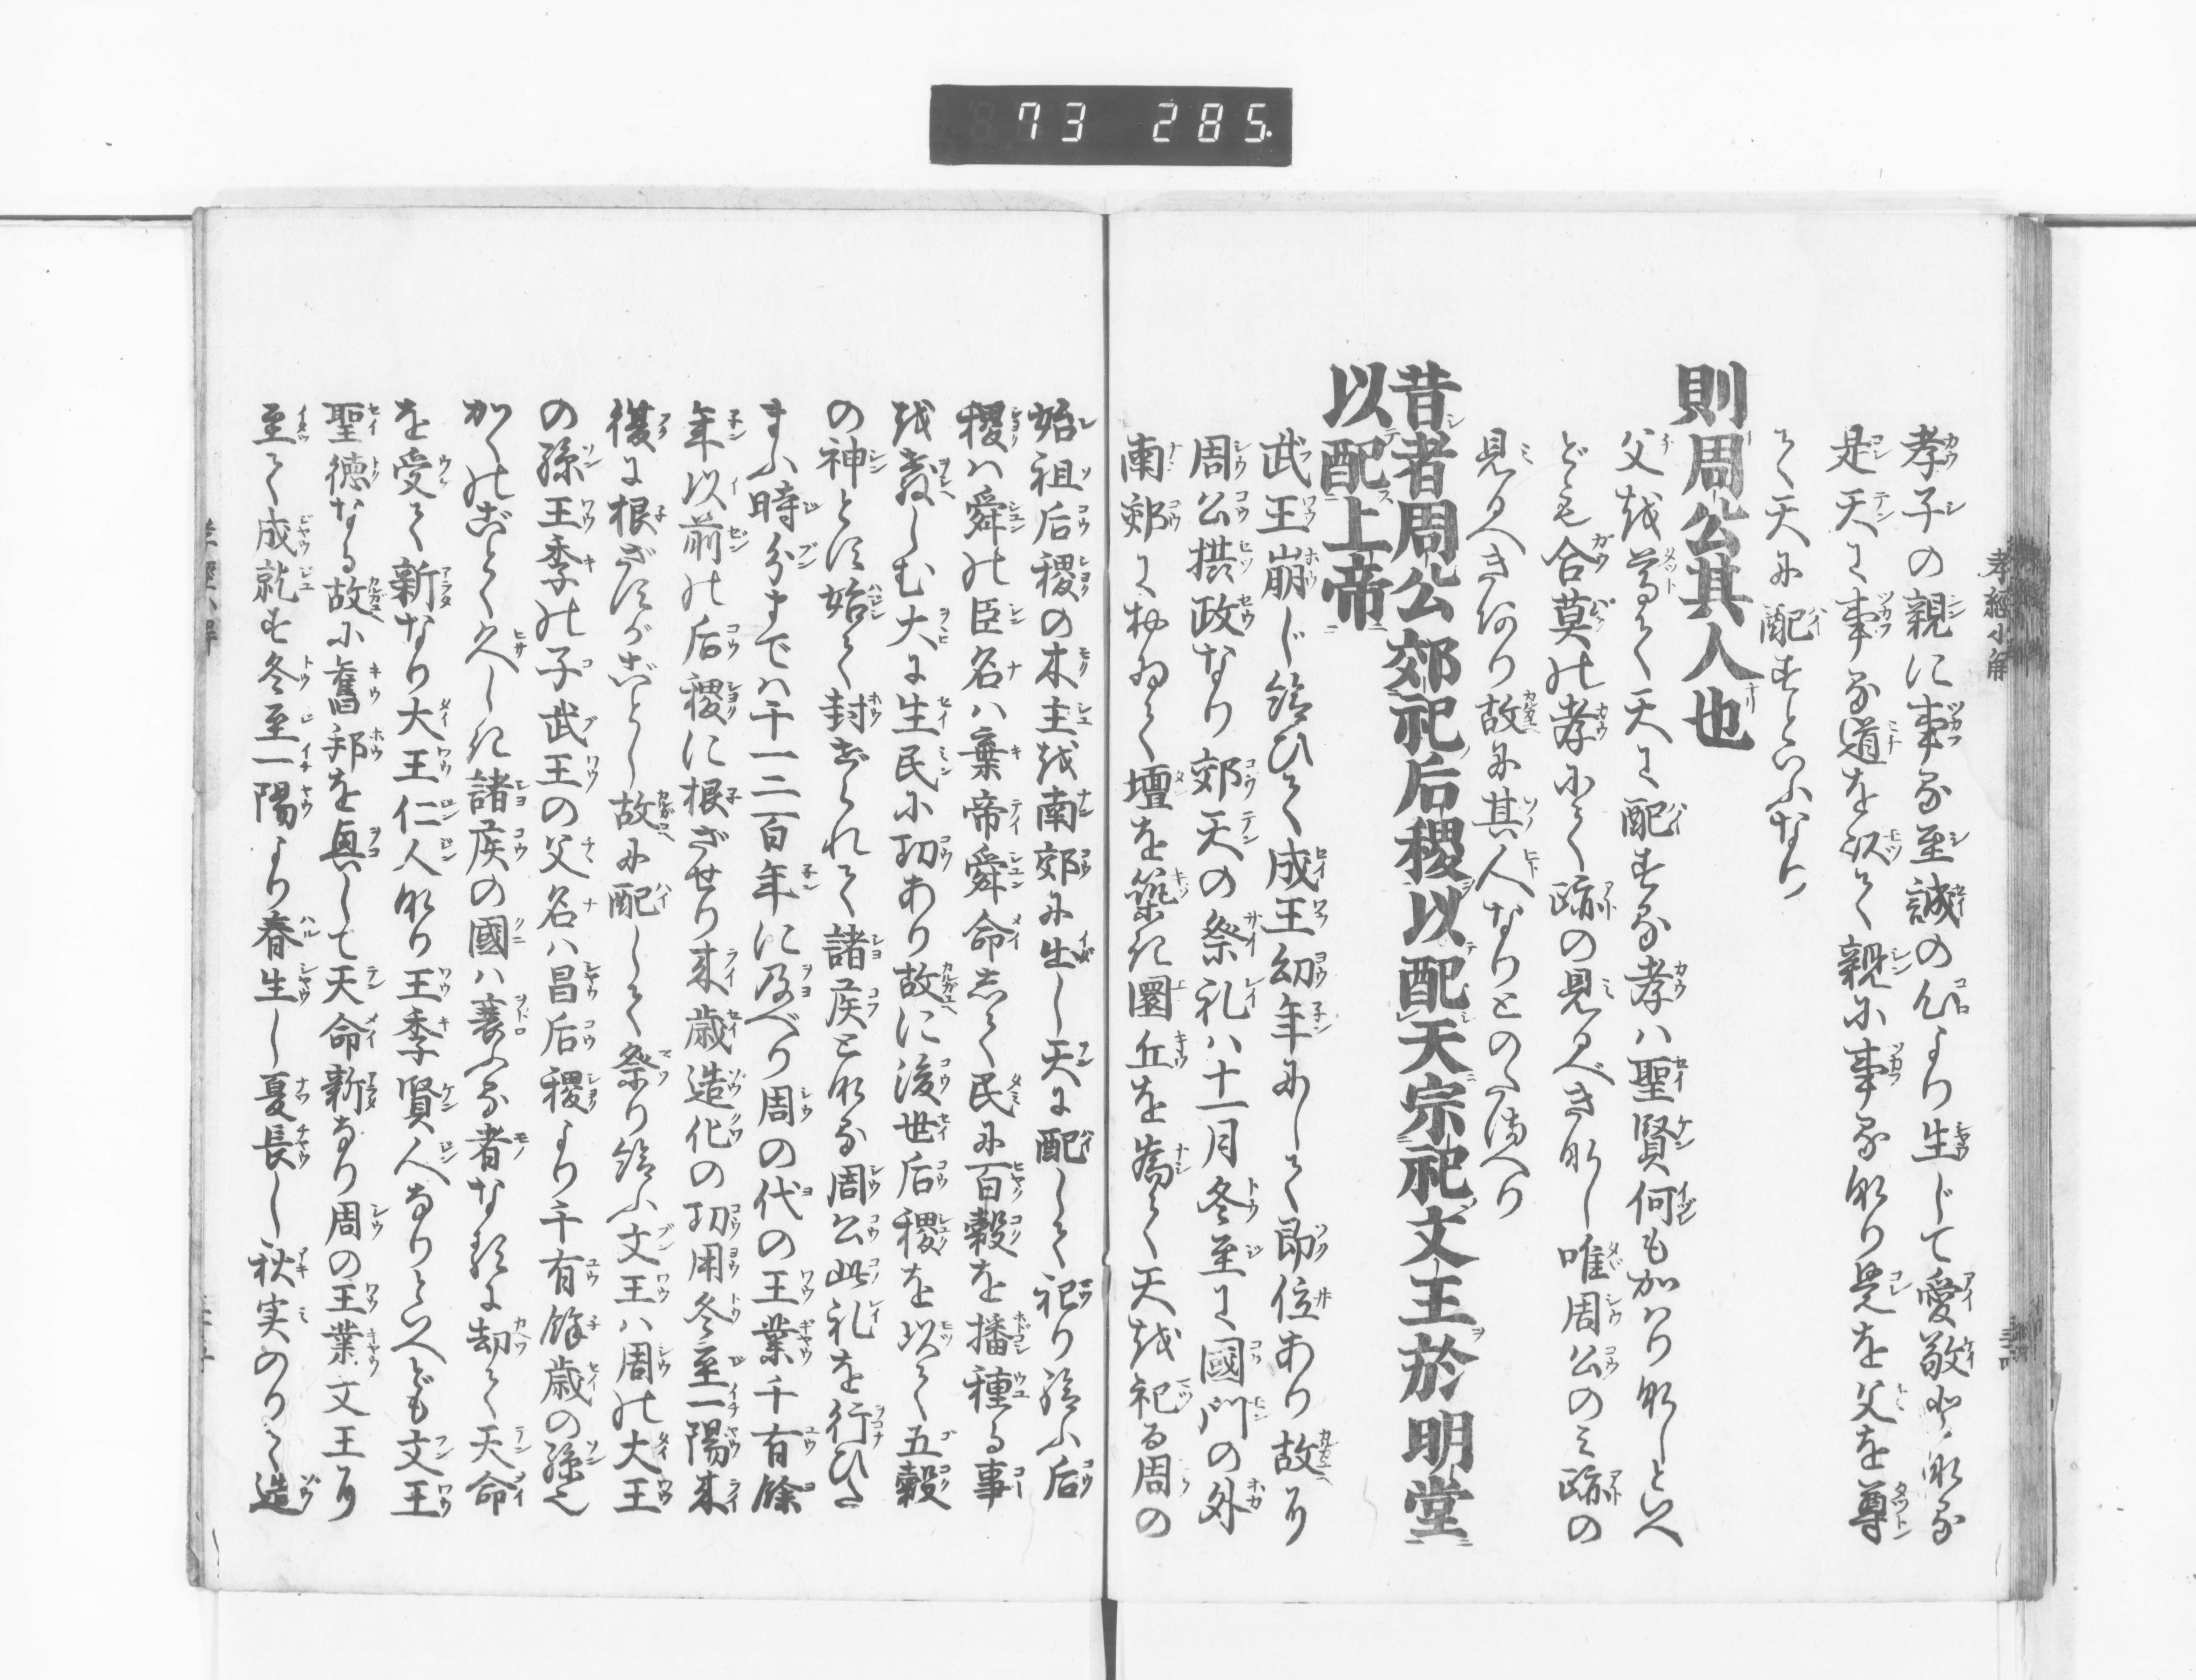 73 285
孝經小解
孝子の親に事る至誠の心より生じて愛敬
是天に事る道を以て親に事るなり是を父を尊
て天に配すといふなり
則周公其人也
父を尊て天に配する孝は聖賢何も加はりなしといへ
ども合莫の孝にて跡の見るべきなし唯周公のミ跡の
見るべきあり故に其人なりとのたまへり
昔者周公郊祀后稷以配天宗祀文王於明堂
以配上帝
武王崩じ給ひて成王幼年にして即位あり故に
周公摂政なり郊天の祭礼は十一月冬至に國門の外
南郊にをゐて壇を築き圜丘を為て天を祀る周の
始祖后稷の木主を南郊に生し天に配して祀り給ふ后
稷は舜の臣名は棄帝舜命じて民に百穀を播種る事
を教しむ大に生民に功あり故に後世后稷を以て五穀
の神とす始て封ぜられて諸侯となる周公此礼を行ひた
まふ時分までは千一二百年に及べり周の代の王業千有餘
年以前の后稷に根ざせり来歳造化の功用冬至一陽来
復に根ざすがごとし故に配して祭り給ふ文王は周の大王
の孫王季の子武王の父名は昌后稷より千有餘歳の孫也
かくのごとく久しき諸侯の國は衰ふる者なるに却て天命
を受て新なり大王仁人なり王季賢人なりといへども文王
聖徳なる故に舊邦を興して天命新なり周の王業文王に
至て成就す冬至一陽より春生し夏長し秋実のりて造